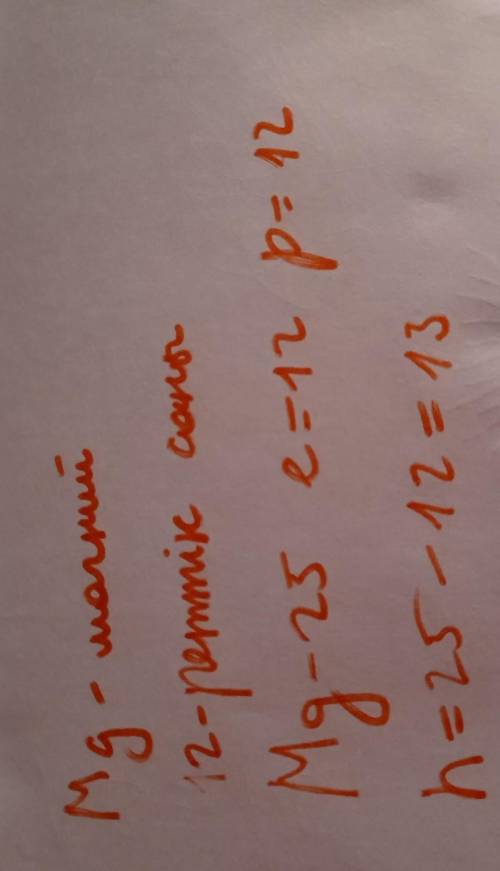 Mg - магний
12-реттік саны
Mg-25 e=12 p=12
n=25-12=13